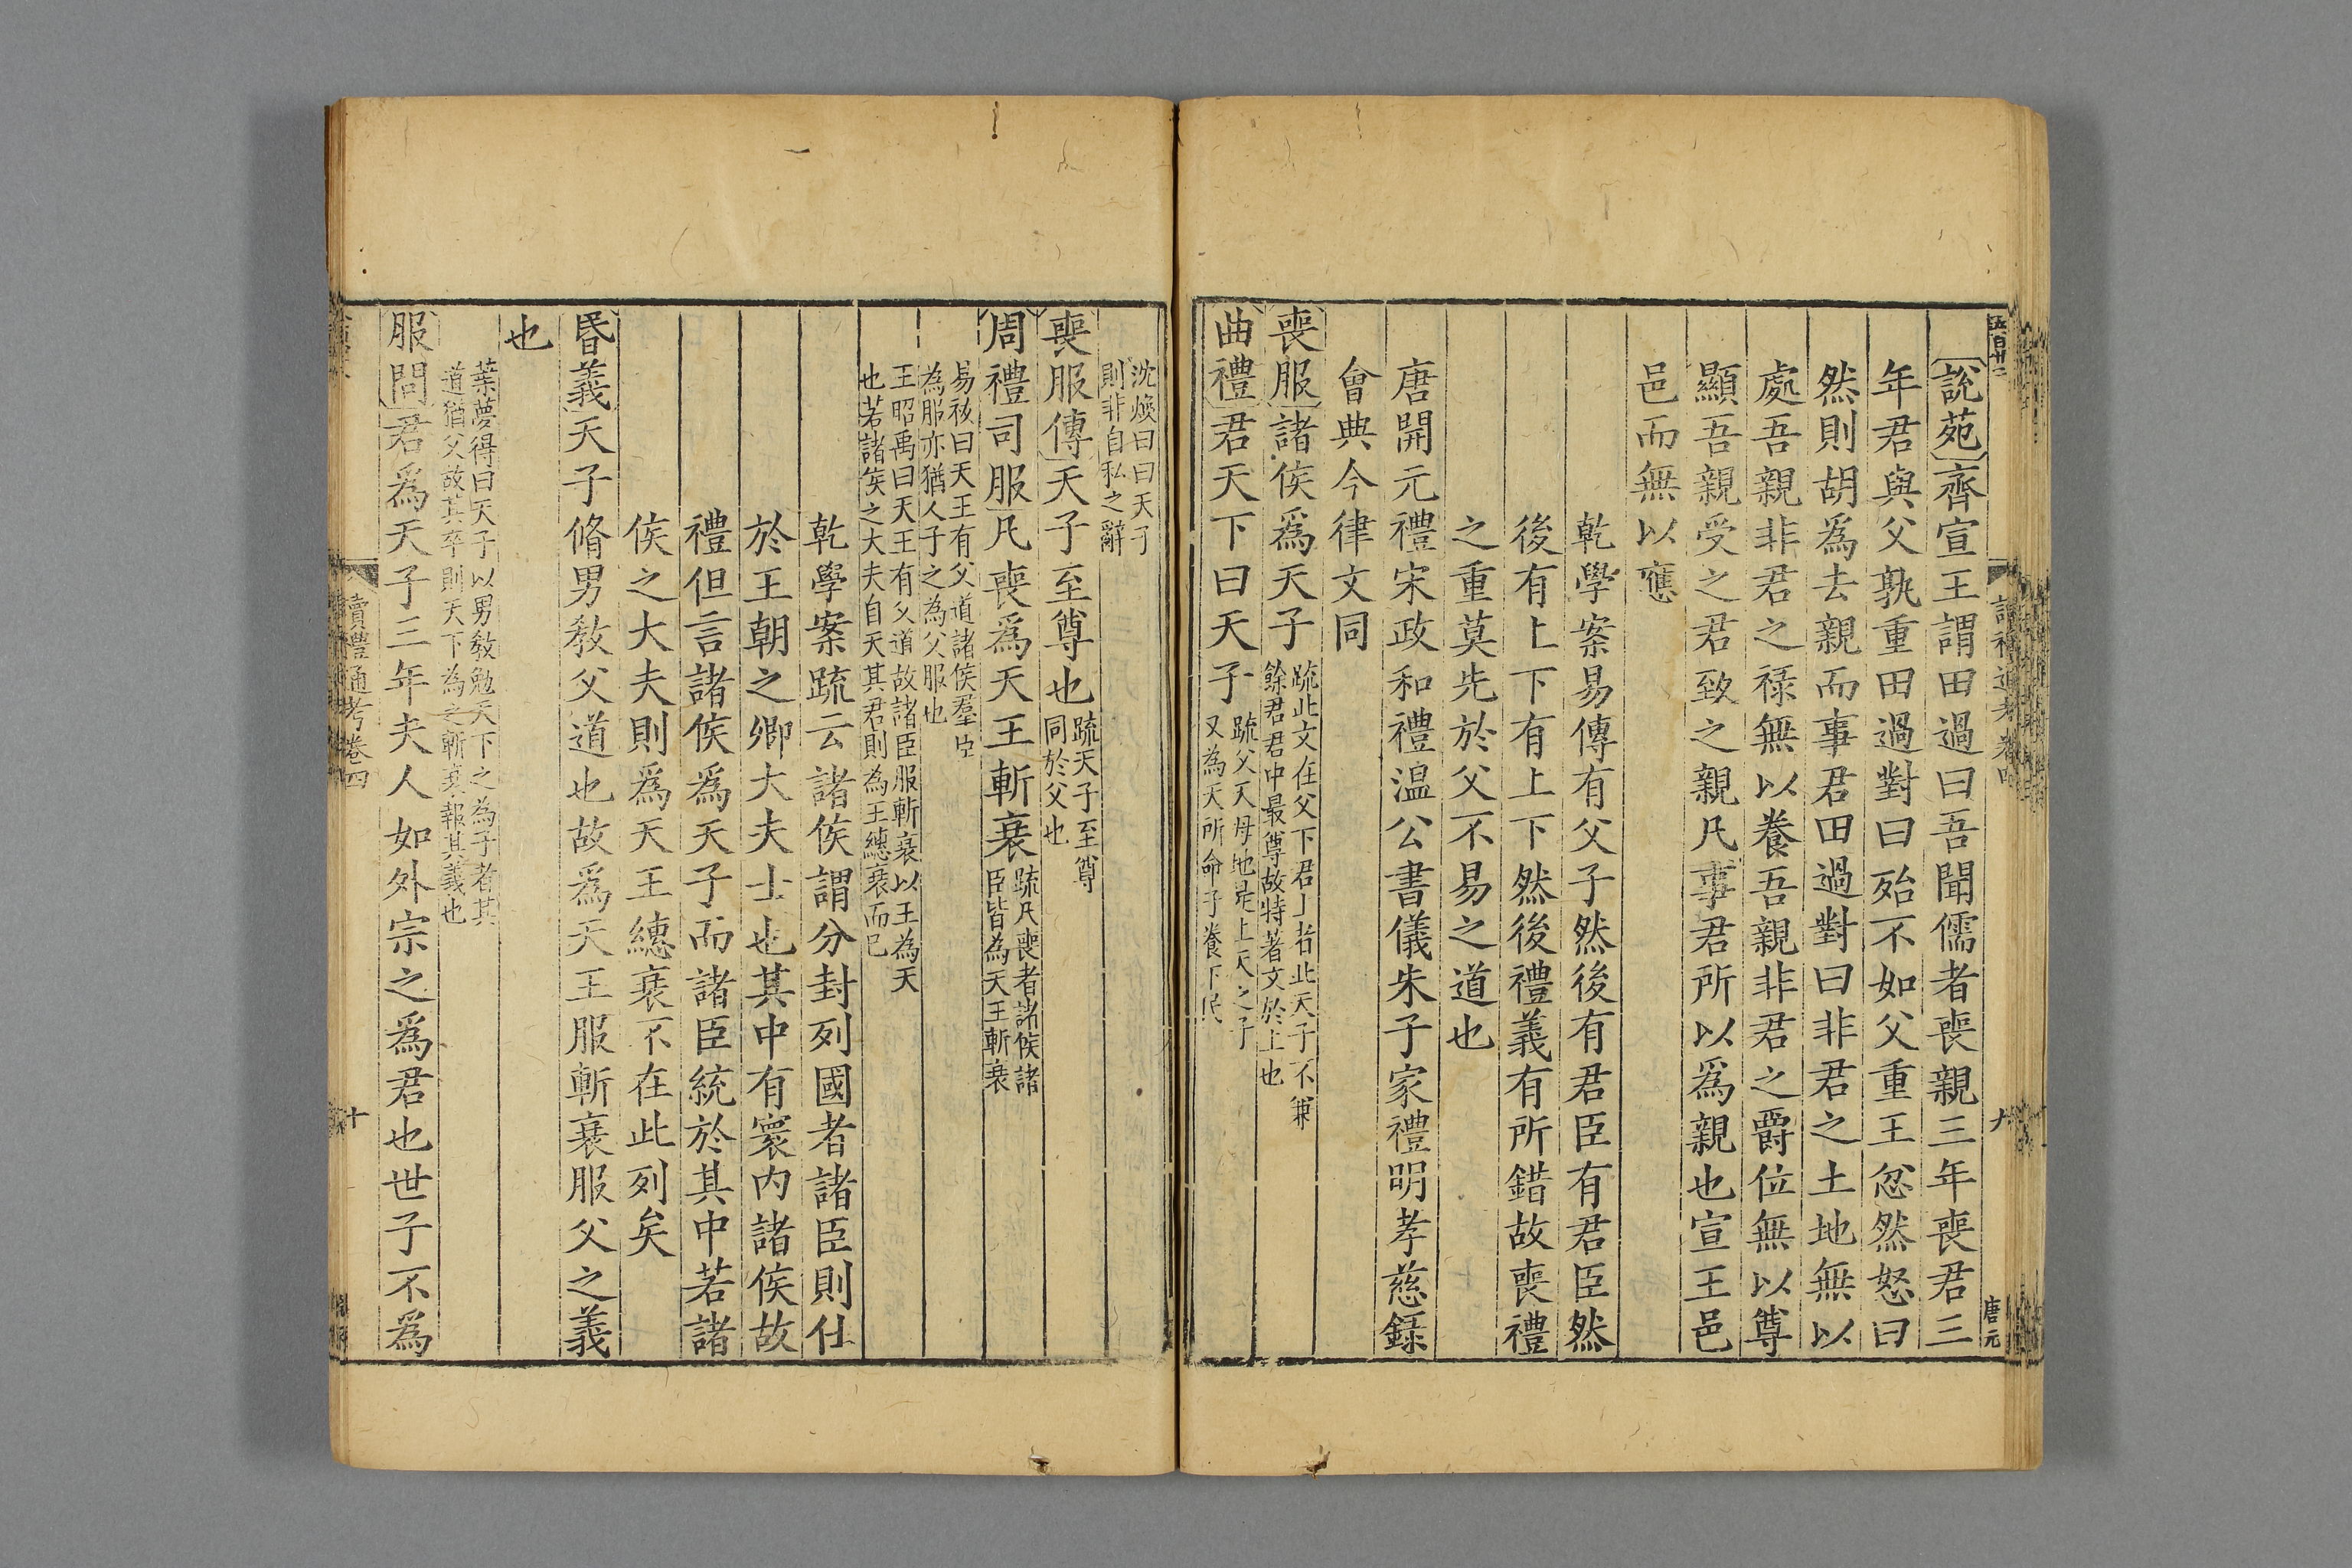 五百廿二
讀禮通考卷四
九
唐元
說苑齊宣王謂田過曰吾聞儒者喪親三年喪君三
年君與父孰重田過對曰殆不如父重王忿然怒曰
然則胡爲去親而事君田過對曰非君之土地無以
處吾親非君之祿無以養吾親非君之爵位無以尊
顯吾親受之君致之親凡事君所以爲親也宣王邑
邑而無以應
乾學案易傳有父子然後有君臣有君臣然
後有上下有上下然後禮義有所錯故喪禮
之重莫先於父不易之道也
唐開元禮宋政和禮温公書儀朱子家禮明孝慈錄
會典今律文同
喪服諸侯爲天子疏此文在父下君上者此天子不兼
餘君君中最尊故特著文於上也
曲禮君天下曰天子疏父天母地是上天之子
又為天所命子養下民
沈煥曰曰天子
則非自私之辭
喪服傳天子至尊也疏天子至尊
同於父也
周禮司服凡喪爲天王斬衰疏凡喪者諸侯諸
臣皆為天王斬衰
易祓曰天王有父道諸侯羣臣
為服亦猶人子之為父服也
王昭禹曰天王有父道故諸臣服斬衰以王為天
也若諸侯之大夫自天其君則為王繐衰而已
乾學案疏云諸侯謂分封列國者諸臣則仕
於王朝之卿大夫士也其中有寰内諸侯故
禮但言諸侯爲天子而諸臣統於其中若諸
侯之大夫則爲天王繐衰不在此列矣
昏義天子脩男教父道也故爲天王服斬衰服父之義
也
葉夢得曰天子以男敎勉天下之為子者其
道猶父故其卒則天下為之斬衰報其義也
服問君爲天子三年夫人如外宗之爲君也世子不爲
讀禮通考卷四
十